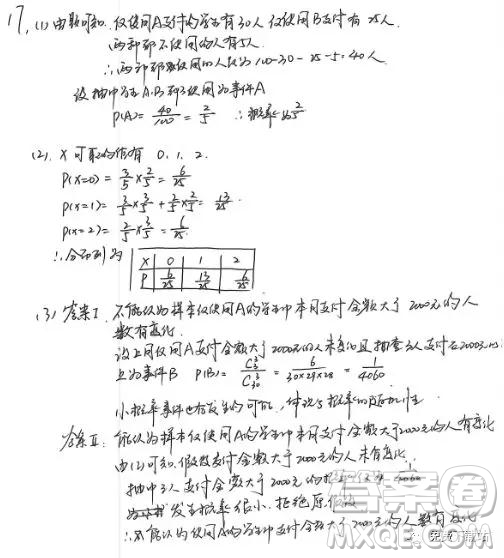 17. (1) 由题可知. 仅使用A支付的学生有30人 仅使用B支付有 25人.
两部都不使用的人有5人.
∴两部都使用的人数为 100-30-25-5=40人
设抽中学生A.B都使用为事件A
P(A)= 40/100 = 2/5 ∴概率为2/5
(2). X 可取的值有 0. 1. 2.
P(X=0)= 3/5 × 2/5 = 6/25
P(X=1)= 3/5 × 3/5 + 2/5 × 2/5 = 13/25.
P(X=2)= 2/5 × 3/5 = 6/25.
∴分布列为
X 0 1 2
P 6/25 13/25 6/25
(3) 答案I. 不能认为样本仅使用A的学生中本月支付金额大于2000元的人
数有变化.
设上月仅用A支付金额大于2000元的人未变化且抽查3人支付在2000元以
上为事件B P(B)= C³₃/C³₃₀ = 6/30×29×28 = 1/4060
小概率事件也有发生的可能, 体现了概率的随机性
答案II. 能认为样本仅使用A的学生中本月支付金额大于2000元的人有变化
由(2)可知. 假设支付金额大于2000元的人未有变化.
抽中3人支付金额大于2000元的概率
发生概率很小. 拒绝原假设
能认为仅使用A的学生中支付金额大于2000元的人数有变化
答案圈